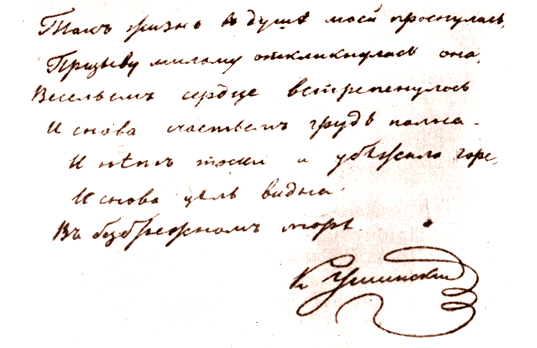 Такъ жизнь въ душѣ моей проснулась,
Призыву милому откликнулась она,
Весельемъ сердце встрепенулось
И снова счастьемъ грудь полна.
И нѣтъ тоски и убѣжало горе,
И снова цель видна
Въ безбрежномъ морѣ.
К Ушинский